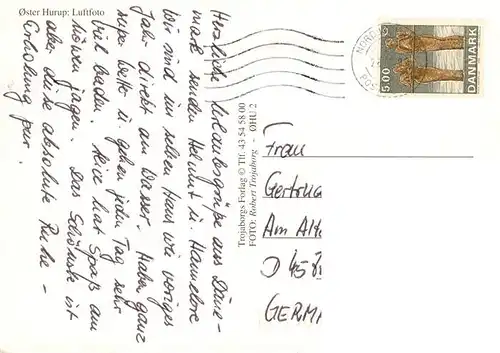 Øster Hurup: Luftfoto
Herzliche Urlaubsgrüße aus Däne-
mark senden Helmut u. Hannelore
Wir sind im selben Haus wie voriges
Jahr direkt am Wasser. Haben ganz
super Wetter u. gehen jeden Tag sehr
viel baden. Rico hat Spaß am
Möwen jagen. Das Schönste ist
aber diese absolute Ruhe -
Erholung pur.
Trojaborgs Forlag © Tlf. 43 54 58 00
FOTO: Robert Trojaborg - ØHU 2
NORD
PO
5.00
DANMARK
Frau
Gertru
Am Alt
D 458
GERM